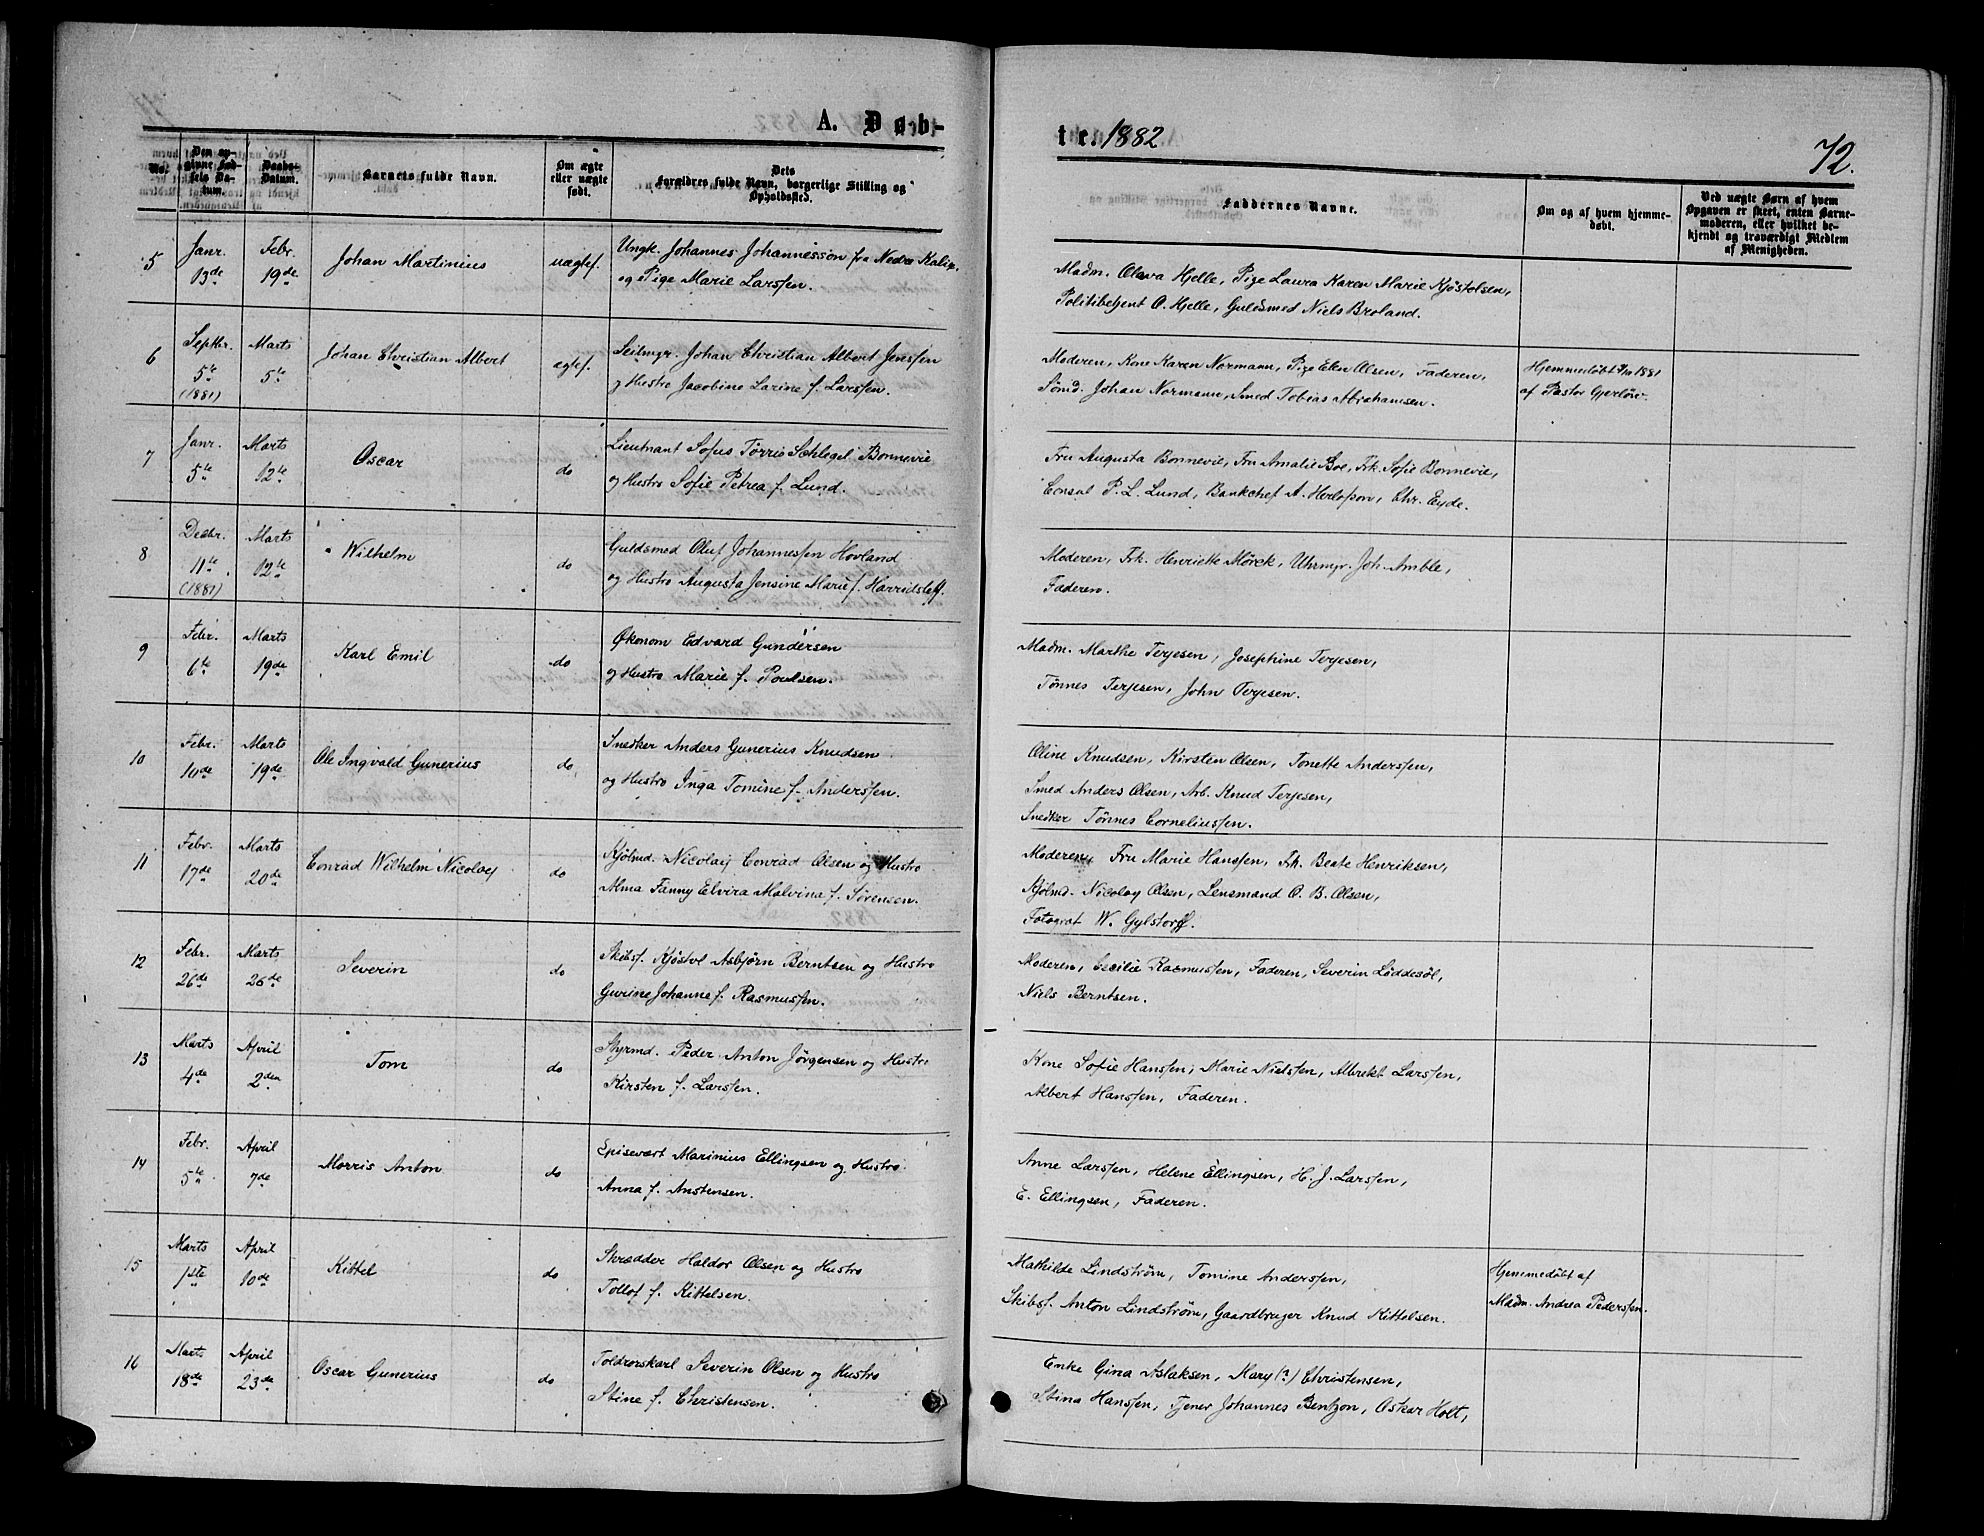 A. Døb-
te. 1882
72.
No.
Den op-
givne Fød-
sels Da-
tum.
Daabs-
Datum.
Barnets fulde Navn.
Om ægte
eller uægte
født.
Dets
Forældres fulde Navn, borgerlige Stilling og
Opholdssted.
Faddernes Navne.
Om og af hvem hjemme-
døbt.
Ved uægte Børn af hvem
Opgaven er skeet, enten Barne-
moderen, eller hvilket be-
kjendt og troværdigt Medlem
af Menigheden.
5
Janr. 13de
Febr. 19de
Johan Martinius
uægtef.
Ungk. Johannes Johannesson fra Nedre Kalix
og Pige Marie Larssen.
Madm. Olava Hjelle, Pige Laura Karen Marie Kjöstolsen,
Politibetjent O. Hjelle, Guldsmed Niels Broland.
6
Septbr. 5te (1881)
Marts 5te
Johan Christian Albert
ægtef.
Seilmgr. Johan Christian Albert Jenssen
og Hustro Jacobine Larine f. Larssen.
Moderen, Kone Karen Normann, Pige Elen Olsen, Faderen,
Sömd. Johan Normann, Smed Tobias Abrahamsen.
Hjemmedöbt 1881
af Pastor Gjerlöw.
7
Janr. 5te
Marts 12te
Oscar
do
Lieutnant Sofus Törris Schlegel Bonnevie
og Hustro Sofie Petrea f. Lund.
Fru Augusta Bonnevie, Fru Amalie Boe, Frk. Sofie Bonnevie,
Consul P. L. Lund, Bankchef A. Herlofson, Chr. Eyde.
8
Decbr. 11te (1881)
Marts 12te
Wilhelm
do
Guldsmed Oluf Johannessen Hovland
og Hustro Augusta Jensine Marie f.
Moderen, Frk. Henriette Mörck, Uhrmgr. Joh. Amble,
Faderen.
9
Febr. 6te
Marts 19de
Karl Emil
do
Økonom Edvard Gundersen
og Hustro Marie f. Poulsen.
Madm. Marthe Terjesen, Josephine Terjesen,
Tönnes Terjesen, John Terjesen.
10
Febr. 10de
Marts 19de
Ole Ingvald Gunerius
do
Snedker Anders Gunerius Knudsen
og Hustro Inga Tomine f. Anderssen.
Oline Knudsen, Kirsten Olsen, Tonette Anderssen,
Smed Anders Olsen, Arb. Knud Terjesen,
Snedker Tönnes Corneliussen.
11
Febr. 17de
Marts 20de
Conrad Wilhelm Nicolay
do
Kjölmd. Nicolay Conrad Olsen og Hustro
Alma Fanny Elvira Malvina f. Sörensen.
Moderen, Fru Marie Hanssen, Frk. Beate Henriksen,
Kjölmd. Nicolay Olsen, Lensmand O. B. Olsen,
Fotograf W. Gylstorff.
12
Febr. 26de
Marts 26de
Severin
do
Skibsf. Kjöstvl Asbjörn Berntsen og Hustro
Gurine Johanne f. Rasmussen.
Moderen, Cecilie Rasmussen, Faderen, Severin Löddesöl,
Niels Berntsen.
13
Marts 4de
April 2den
Tom
do
Styrmd. Peder Anton Jörgensen og Hustro
Kirsten f. Larssen.
Kone Sofie Hanssen, Marie Nielssen, Albrekt Larssen,
Albert Hanssen, Faderen.
14
Febr. 5te
April 7de
Morris Anton
do
Spisevært Marinius Ellingsen og Hustro
Anna f. Anstensen.
Anne Larssen, Helene Ellingsen, H. J. Larssen,
E. Ellingsen, Faderen.
15
Marts 1ste
April 10de
Kittel
do
Skrædder Haldor Olsen og Hustro
Tollof f. Kittelsen.
Mathilde Lindström, Tomine Anderssen,
Skibsf. Anton Lindström, Gaardbruger Knud Kittelsen.
Hjemmedöbt af
Madm. Andrea Pederssen.
16
Marts 18de
April 23de
Oscar Gunerius
do
Toldrorskarl Severin Olsen og Hustro
Stine f. Christensen.
Enke Gina Aslaksen, Mary (?) Christensen,
Stina Hanssen, Tjener Johannes Bentzon, Oskar Holt,